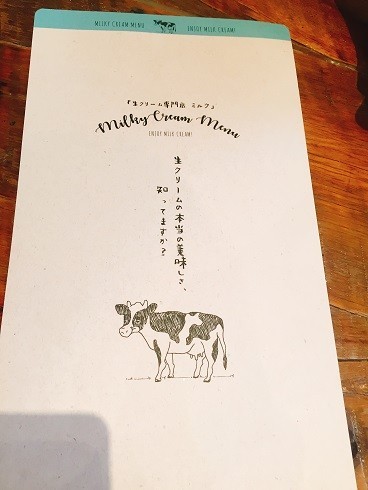 MILKY CREAM MENU
ENJOY MILK CREAM!
「生クリーム専門店 ミルク」
Milky Cream Menu
ENJOY MILK CREAM!
生クリームの本当の美味しさ、
知ってますか?